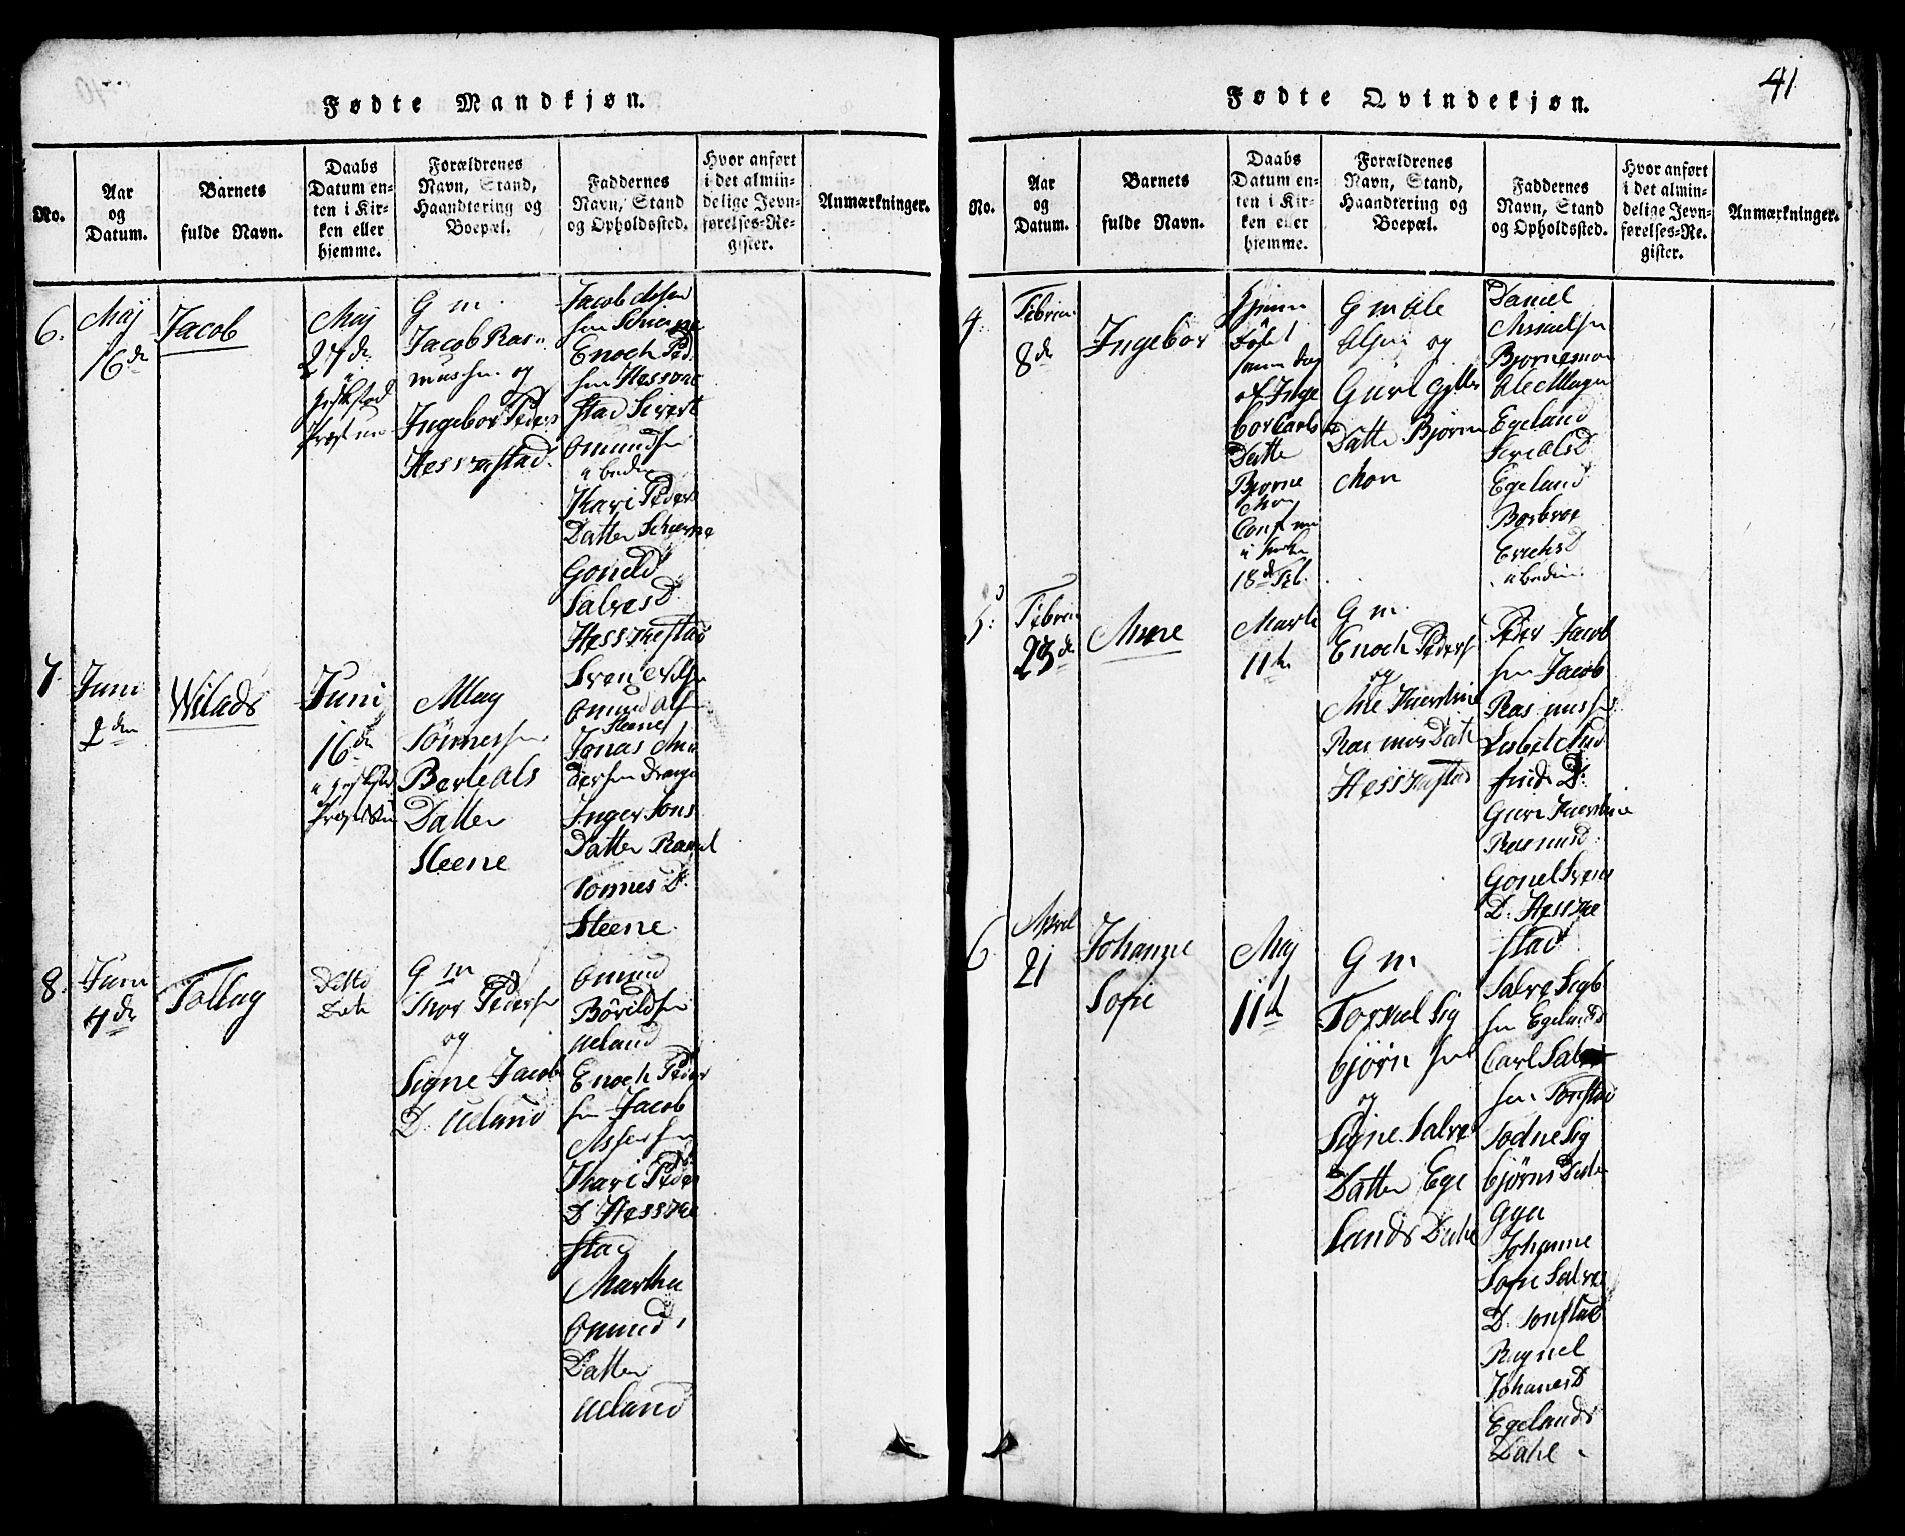 41
Fødte Mandkjøn.
No.
Aar
og
Datum.
Barnets
fulde Navn.
Daabs
Datum en-
ten i Kir-
ken eller
hjemme.
Forældrenes
Navn, Stand,
Haandtering og
Boepæl.
Faddernes
Navn, Stand
og Opholdssted.
Hvor anført
i det almin-
delige Jevn-
førelses-Re-
gister.
Anmærkninger.
6.
Maj
16de
Jacob
Maj
27de
G m
Jacob Ras
mussen og
Ingebor Peders
Hessvestad
Jacob
sen Schierpe
Enoch Ped
sen Hessvee
stad Sivert
Omundsen
Kari Peders
Datter Schierpe
Goneld
Salves D
Hessvestad
7
Juni
2den
Wilads
Juni
16de
Aslag
Tønnessen
Berte Ols
Datter
Steene
Sven
Omund Ols
Steene
Jonas An
dersen Drange
Inger Jons
Datter
Tonnes D.
Steene
8.
Juni
4de
Tollag
Ditto
Dato
G m
Thor Pedersen
og
Signe Jacobs
D. Ueland
Omund
Børildsen
Ueland
Enoch Peder
sen Jacob
Assersen
Kari Peders
D Hessvee
stad
Martha
Omunds
Datter
Ueland
Fødte Qvindekjøn.
No.
Aar
og
Datum.
Barnets
fulde Navn.
Daabs
Datum en-
ten i Kir-
ken eller
hjemme.
Forældrenes
Navn, Stand,
Haandtering og
Boepæl.
Faddernes
Navn, Stand
og Opholdssted.
Hvor anført
i det almin-
delige Jevn-
førelses-Re-
gister.
Anmærkninger.
4.
Februar
8de
Ingebor
hjemme
Døbt
samme Dag
af Inge
bor Carls
Datter
Bjørne
Mon
Conf
18de Feb.
G m Ole
Olsen og
Guri
Datter Bjørne
Mon
Daniel
Bjørnemon
Ole Mags
Egeland
Siri Ols D
Egeland
Borbroe
Erichs D
5.
Februar
23de
Anne
Marti
11te
G m
Enoch Peders
og
Ane Kierstine
Rasmus Datt
Hessvestad
Peder Jacob
sen Jacob
Rasmussen
Lisbet And
finds D.
Guri Kierstine
Rasmus D.
Gonel Svens
D. Hessvee
stad
6
April
21
Johanne
Sofie
Maj
11te
G m
Torkel Sig
bjørnsen
og
Signe Salve
Datter Ege
lands Dahl
Salve Sigb
sen Egeland
Carl Salve
sen Tonstad
Todne Sig
bjørns Datter
Gya
Johanne
Sofie Salves
D. Tonstad
Ragnel
Johannes D
Egelands
Dahl